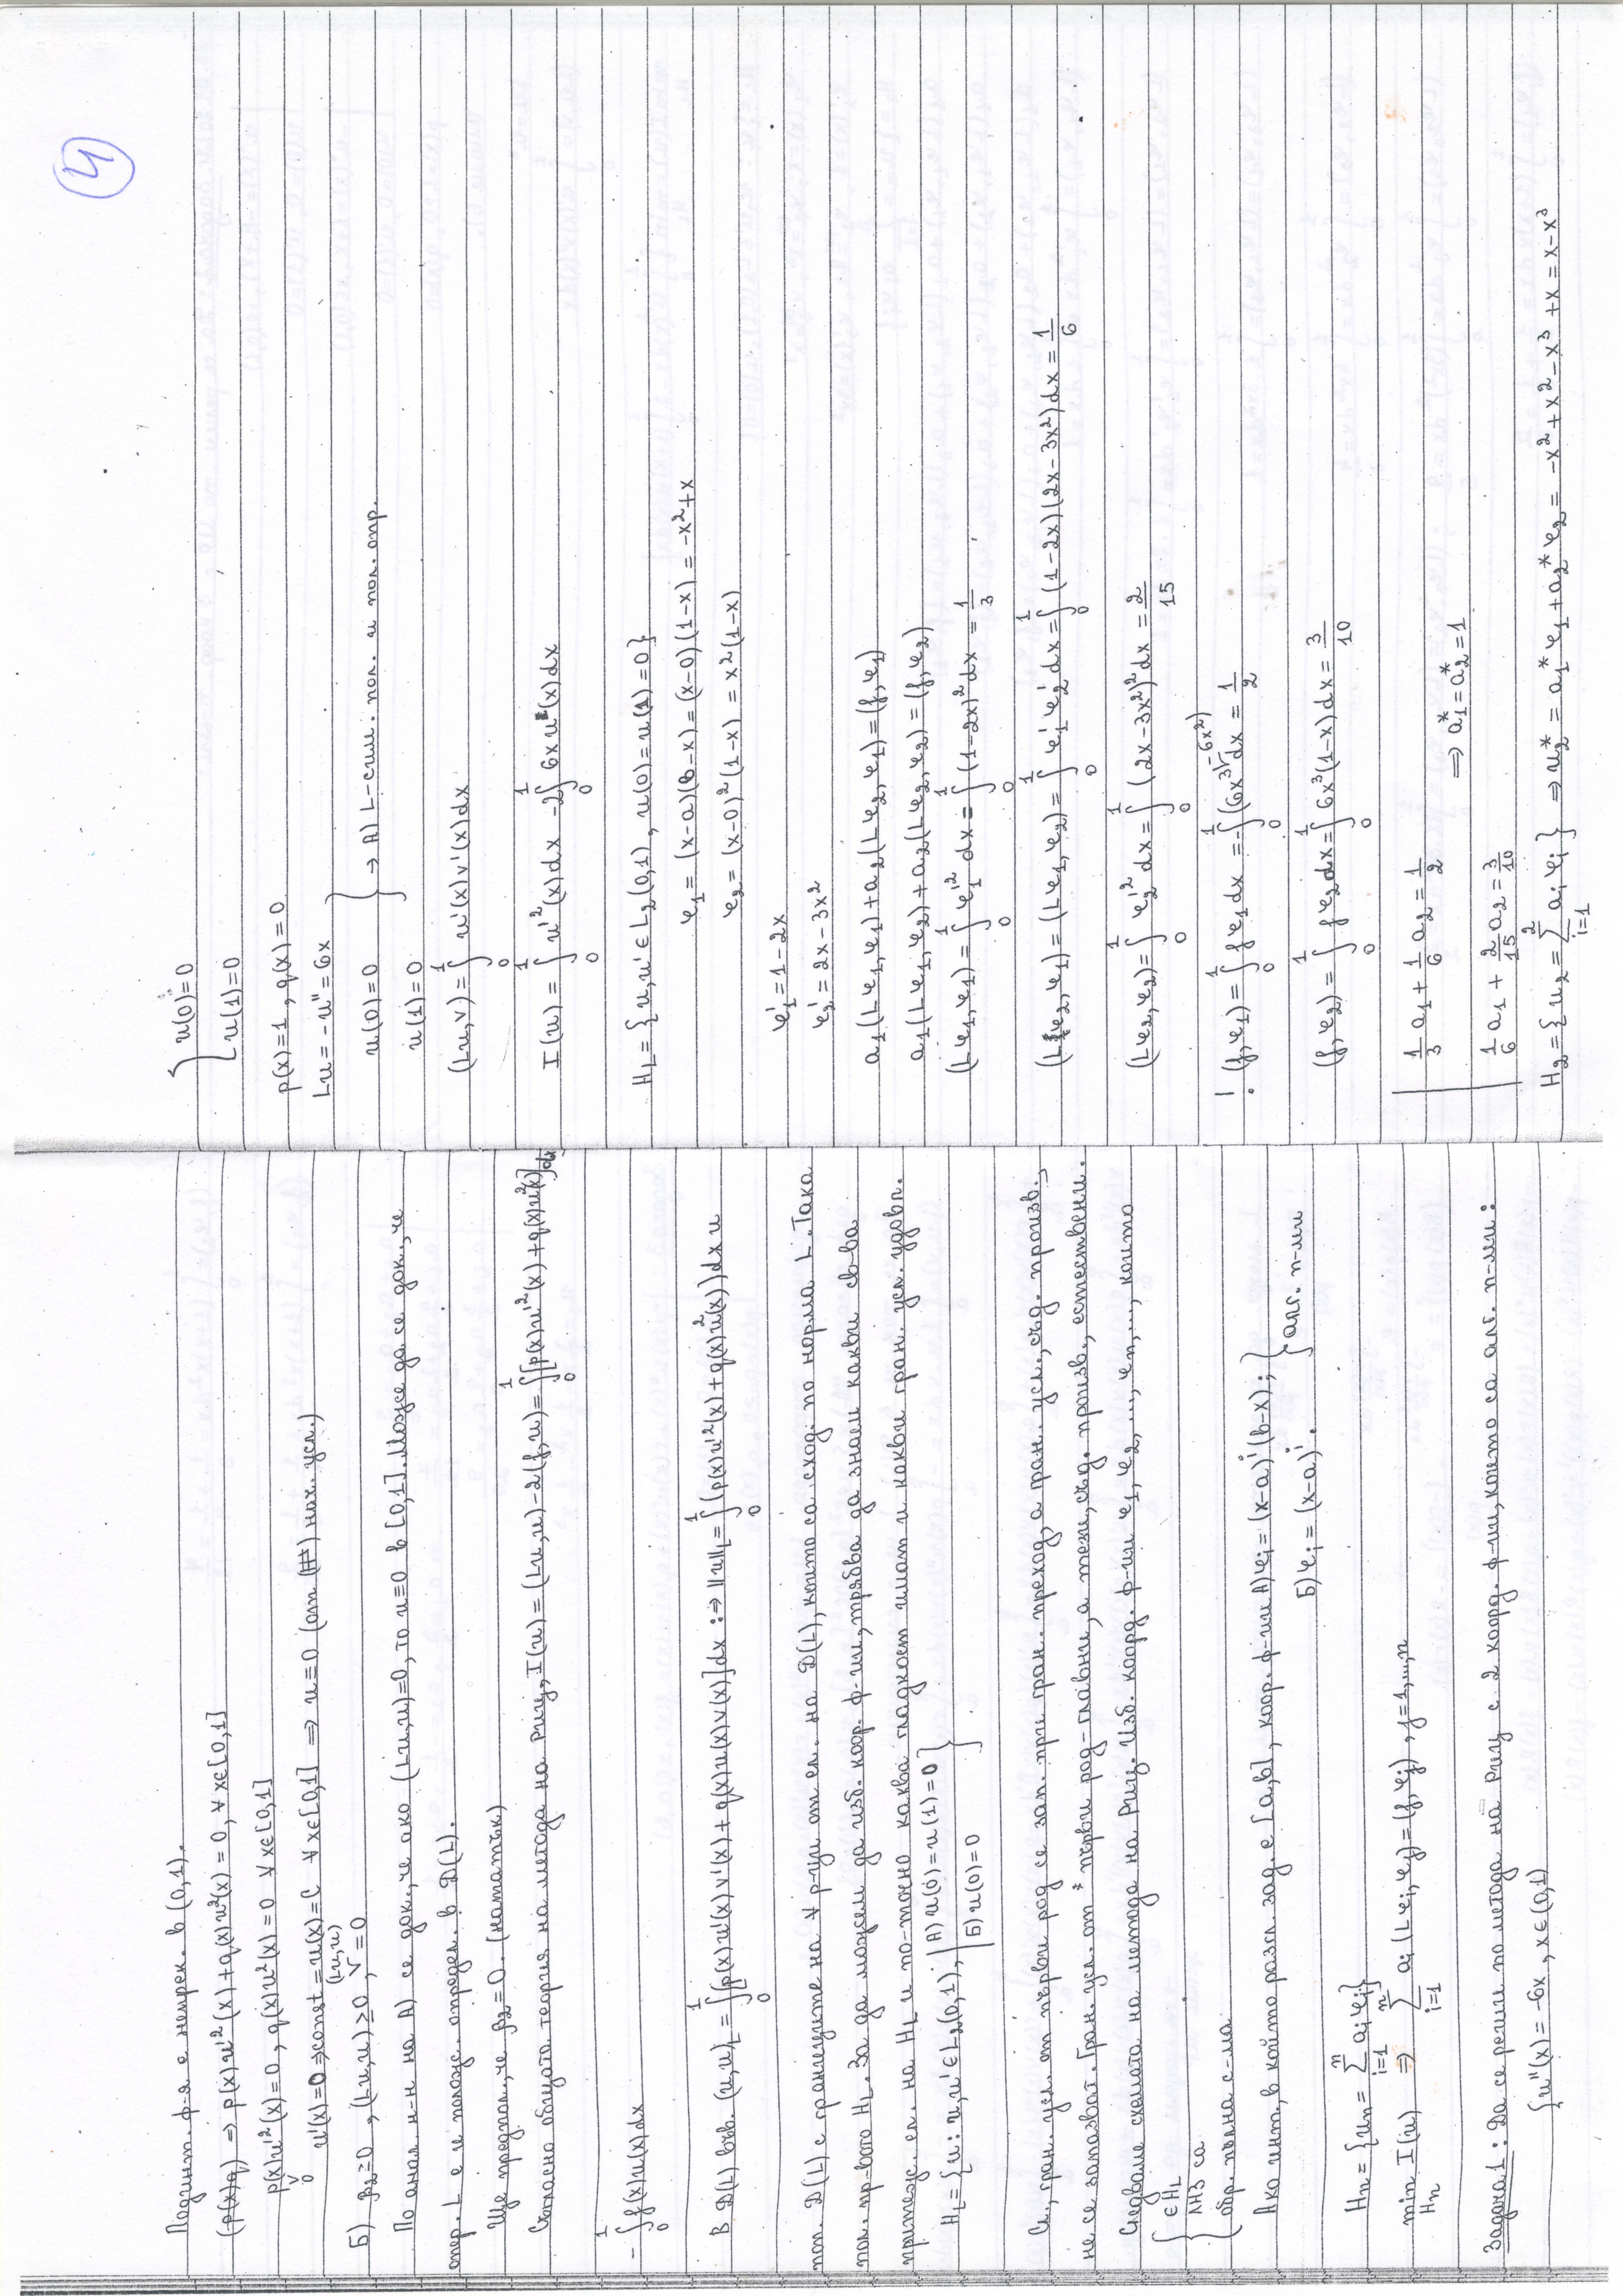 Подинт. ф-я е непрек. в (0,1).
(p(x)q) ⇒ p(x)u'²(x)+q(x)u²(x) = 0, ∀ x∈[0,1]
p(x)u'²(x)=0, q(x)u²(x)=0 ∀ x∈[0,1]
∨
0
u'(x)=0 ⇒const=u(x)=C ∀ x∈[0,1] ⇒ u≡0 (от (#) нач. усл.)
Б) β₂=0, (Lu,u)≥0, (Lu,u)=0
По анал. н-н на А) се док., че ако (Lu,u)=0, то u≡0 в [0,1]. Може да се док., че
опер. L е и полож. определ. в D(L).
Ще предпол., че β₂=0. (нататък)
Съгласно общата теория на метода на Риц, I(u) = (Lu,u)-2(f,u)= ∫₀¹[p(x)u'²(x)+q(x)u²(x)]dx
- ∫₀¹ f(x)u(x)dx
В D(L) във. (u,u)_L = ∫₀¹[p(x)u'(x)v'(x) + q(x)u(x)v(x)]dx :⇒ ||u||_L = ∫₀¹(p(x)u'²(x)+q(x)u²(x))dx и
поп. D(L) с границите на ∀ р-ци от ел. на D(L), които са сход. по норма L. Така
пол. пр-вото H_L. За да можем да изб. коор. ф-ии, трябва да знаем какви св-ва
притеж. ел. на H_L и по-точно каква гладкост имат и какви гран. усл. удовл.
H_L={u: u,u'∈L₂(0,1), | А) u(0)=u(1)=0 }
| Б) u(0)=0 }
Сл., гран. усл. от първи род се зап. при гран. преход, а гран. усл., съд. произв.,
не се запазват. Гран. усл. от * първи род-главни, а тези, съд. произв., естествени.
Следваме схемата на метода на Риц. Изб. коорд. ф-ии φ₁, φ₂,..., φₙ,..., които
{ ∈H_L
ЛНЗ са
обр. пълна с-ма
Ако инт., в който разгл. зад. е [a,b], коор. ф-ии А)φᵢ=(x-a)ⁱ(b-x); } алг. п-ми
Б)φᵢ=(x-a)ⁱ.
Hₙ={uₙ= Σᵢ₌₁ⁿ aᵢφᵢ}
min I(u) ⇒ Σᵢ₌₁ⁿ aᵢ(Lφᵢ,φⱼ)=(f,φⱼ), j=1,...,n
Hₙ
Задача 1: Да се реши по метода на Риц с 2 коорд. ф-ии, които са алг. п-ми:
{ u''(x)=-6x, x∈(0,1)
4
{ u(0)=0
u(1)=0
p(x)=1, q(x)=0
Lu=-u''=6x
u(0)=0 } → А) L-сим. пол. и пол. опр.
u(1)=0
(Lu,v)=∫₀¹ u'(x)v'(x)dx
I(u)=∫₀¹ u'²(x)dx -2∫₀¹ 6xu(x)dx
H_L={u,u'∈L₂(0,1), u(0)=u(1)=0}
φ₁=(x-a)(b-x)=(x-0)(1-x)=-x²+x
φ₂=(x-0)²(1-x)=x²(1-x)
φ₁'=1-2x
φ₂'=2x-3x²
a₁(Lφ₁,φ₁)+a₂(Lφ₂,φ₁)=(f,φ₁)
a₁(Lφ₁,φ₂)+a₂(Lφ₂,φ₂)=(f,φ₂)
(Lφ₁,φ₁)=∫₀¹ φ₁'²dx=∫₀¹(1-2x)²dx=1/3
(Lφ₂,φ₁)=(Lφ₁,φ₂)=∫₀¹ φ₁'φ₂'dx=∫₀¹(1-2x)(2x-3x²)dx=1/6
(Lφ₂,φ₂)=∫₀¹ φ₂'²dx=∫₀¹(2x-3x²)²dx=2/15
! (f,φ₁)=∫₀¹ fφ₁dx=-∫₀¹(6x³-6x²)dx=1/2
(f,φ₂)=∫₀¹ fφ₂dx=∫₀¹ 6x³(1-x)dx=3/10
| 1/3 a₁ + 1/6 a₂ = 1/2
⇒ a₁*=a₂*=1
| 1/6 a₁ + 2/15 a₂ = 3/10
H₂={u₂=Σᵢ₌₁² aᵢφᵢ} ⇒ u₂*=a₁*φ₁+a₂*φ₂=-x²+x²-x³+x=x-x³